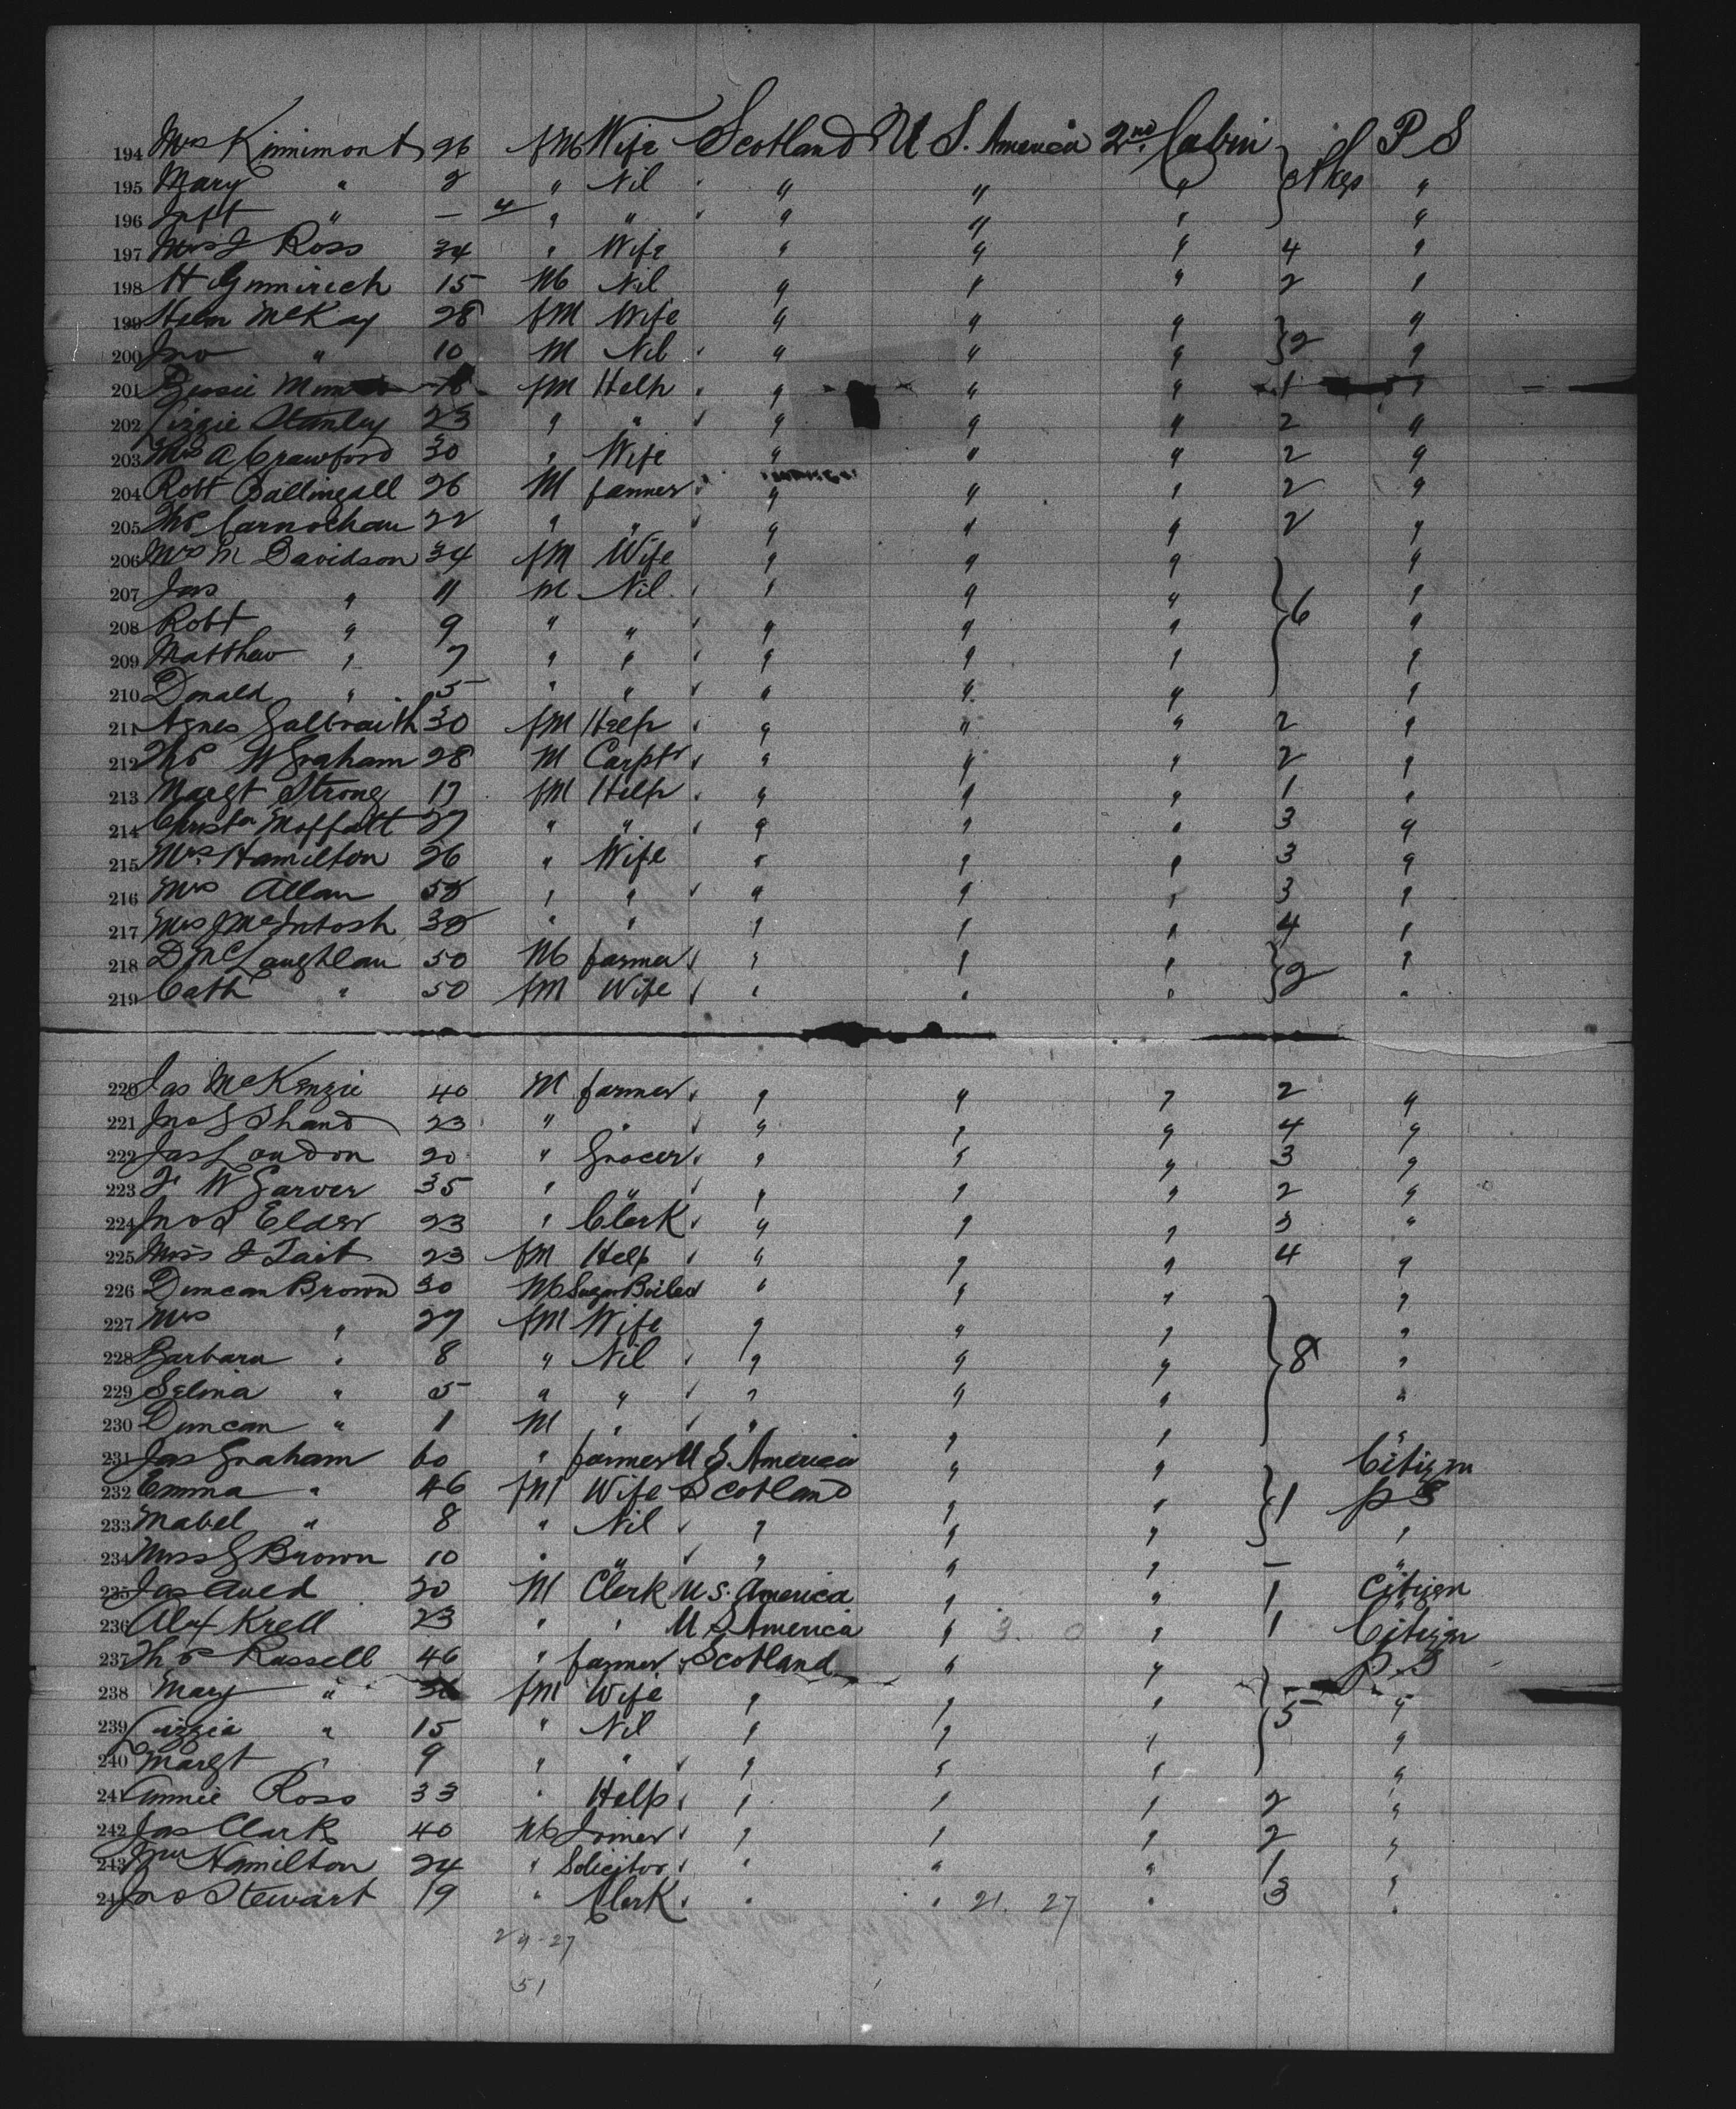 194 Mrs Kinnimont 26 fM Wife Scotland U S. America 2nd Cabin P S
195 Mary " 2 " Nil " " " pkgs "
196 Inft " — 4 " " " " " "
197 Mrs J Ross 34 " Wife " " " 4 "
198 H 15 M Nil " " " 2 "
199 Helen McKay 28 fM Wife " " " "
200 Jno " 10 M Nil " " " 2 "
201 Bessie fM Help " " " 1 "
202 Lizzie Stanley 23 " " " " " 2 "
203 Mrs A Crawford 30 " Wife " " " 2 "
204 Robt Ballingall 26 M farmer " " " 2 "
205 Ths Carnochan 22 " " " " " 2 "
206 Mrs M Davidson 34 fM Wife " " " "
207 Jas " 11 M Nil " " " 6 "
208 Robt " 9 " " " " " "
209 Matthew " 7 " " " " " "
210 Donald " 5 " " " " " "
211 Agnes Galbraith 30 fM Help " " " 2 "
212 Ths W Graham 28 M Carptr " " " 2 "
213 Margt Strong 17 fM Help " " " 1 "
214 Moffatt 27 " " " " " 3 "
215 Mrs Hamilton 26 " Wife " " " 3 "
216 Mrs Allan 58 " " " " " 3 "
217 Mrs J McIntosh " " " " " 4 "
218 D McLaughlan 50 M farmer " " " 2 "
219 Cath " 50 fM Wife " " " "
220 Jas McKenzie 40 M farmer " " " 2 "
221 Jno S Shand 23 " " " " " 4 "
222 Jas Loudon 20 " Grocer " " " 3 "
223 W Garver 35 " " " " " 2 "
224 Jno S Elder 23 " Clerk " " " 3 "
225 Miss J Tait 23 fM Help " " " 4 "
226 Duncan Brown 30 M Sugar Boiler " " " "
227 Mrs " 27 fM Wife " " " "
228 Barbara " 8 " Nil " " " 8 "
229 Selina " 5 " " " " " "
230 Duncan " 1 M " " " " "
231 Jas Graham 60 " farmer U S. America " " Citizen
232 Emma " 46 fM Wife Scotland " " 1 P S
233 Mabel " 8 " Nil " " " "
234 Miss G Brown 10 " " " " " — "
235 Jas Auld 20 M Clerk U S. America " " 1 Citizen
236 Alex Krell 23 " " U S America " 3. 0 " 1 Citizen
237 Ths Russell 46 " farmer Scotland " " P S
238 Mary " fM Wife " " " 5 "
239 Lizzie " 15 " Nil " " " "
240 Margt " 9 " " " " " "
241 Annie Ross 33 " Help " " " 2 "
242 Jas Clark 40 M Joiner " " " 2 "
243 Wm Hamilton 24 " Solicitor " " " 1 "
24 Jno Stewart 19 " Clerk " " 21. 27 " 3 "
24-27
51